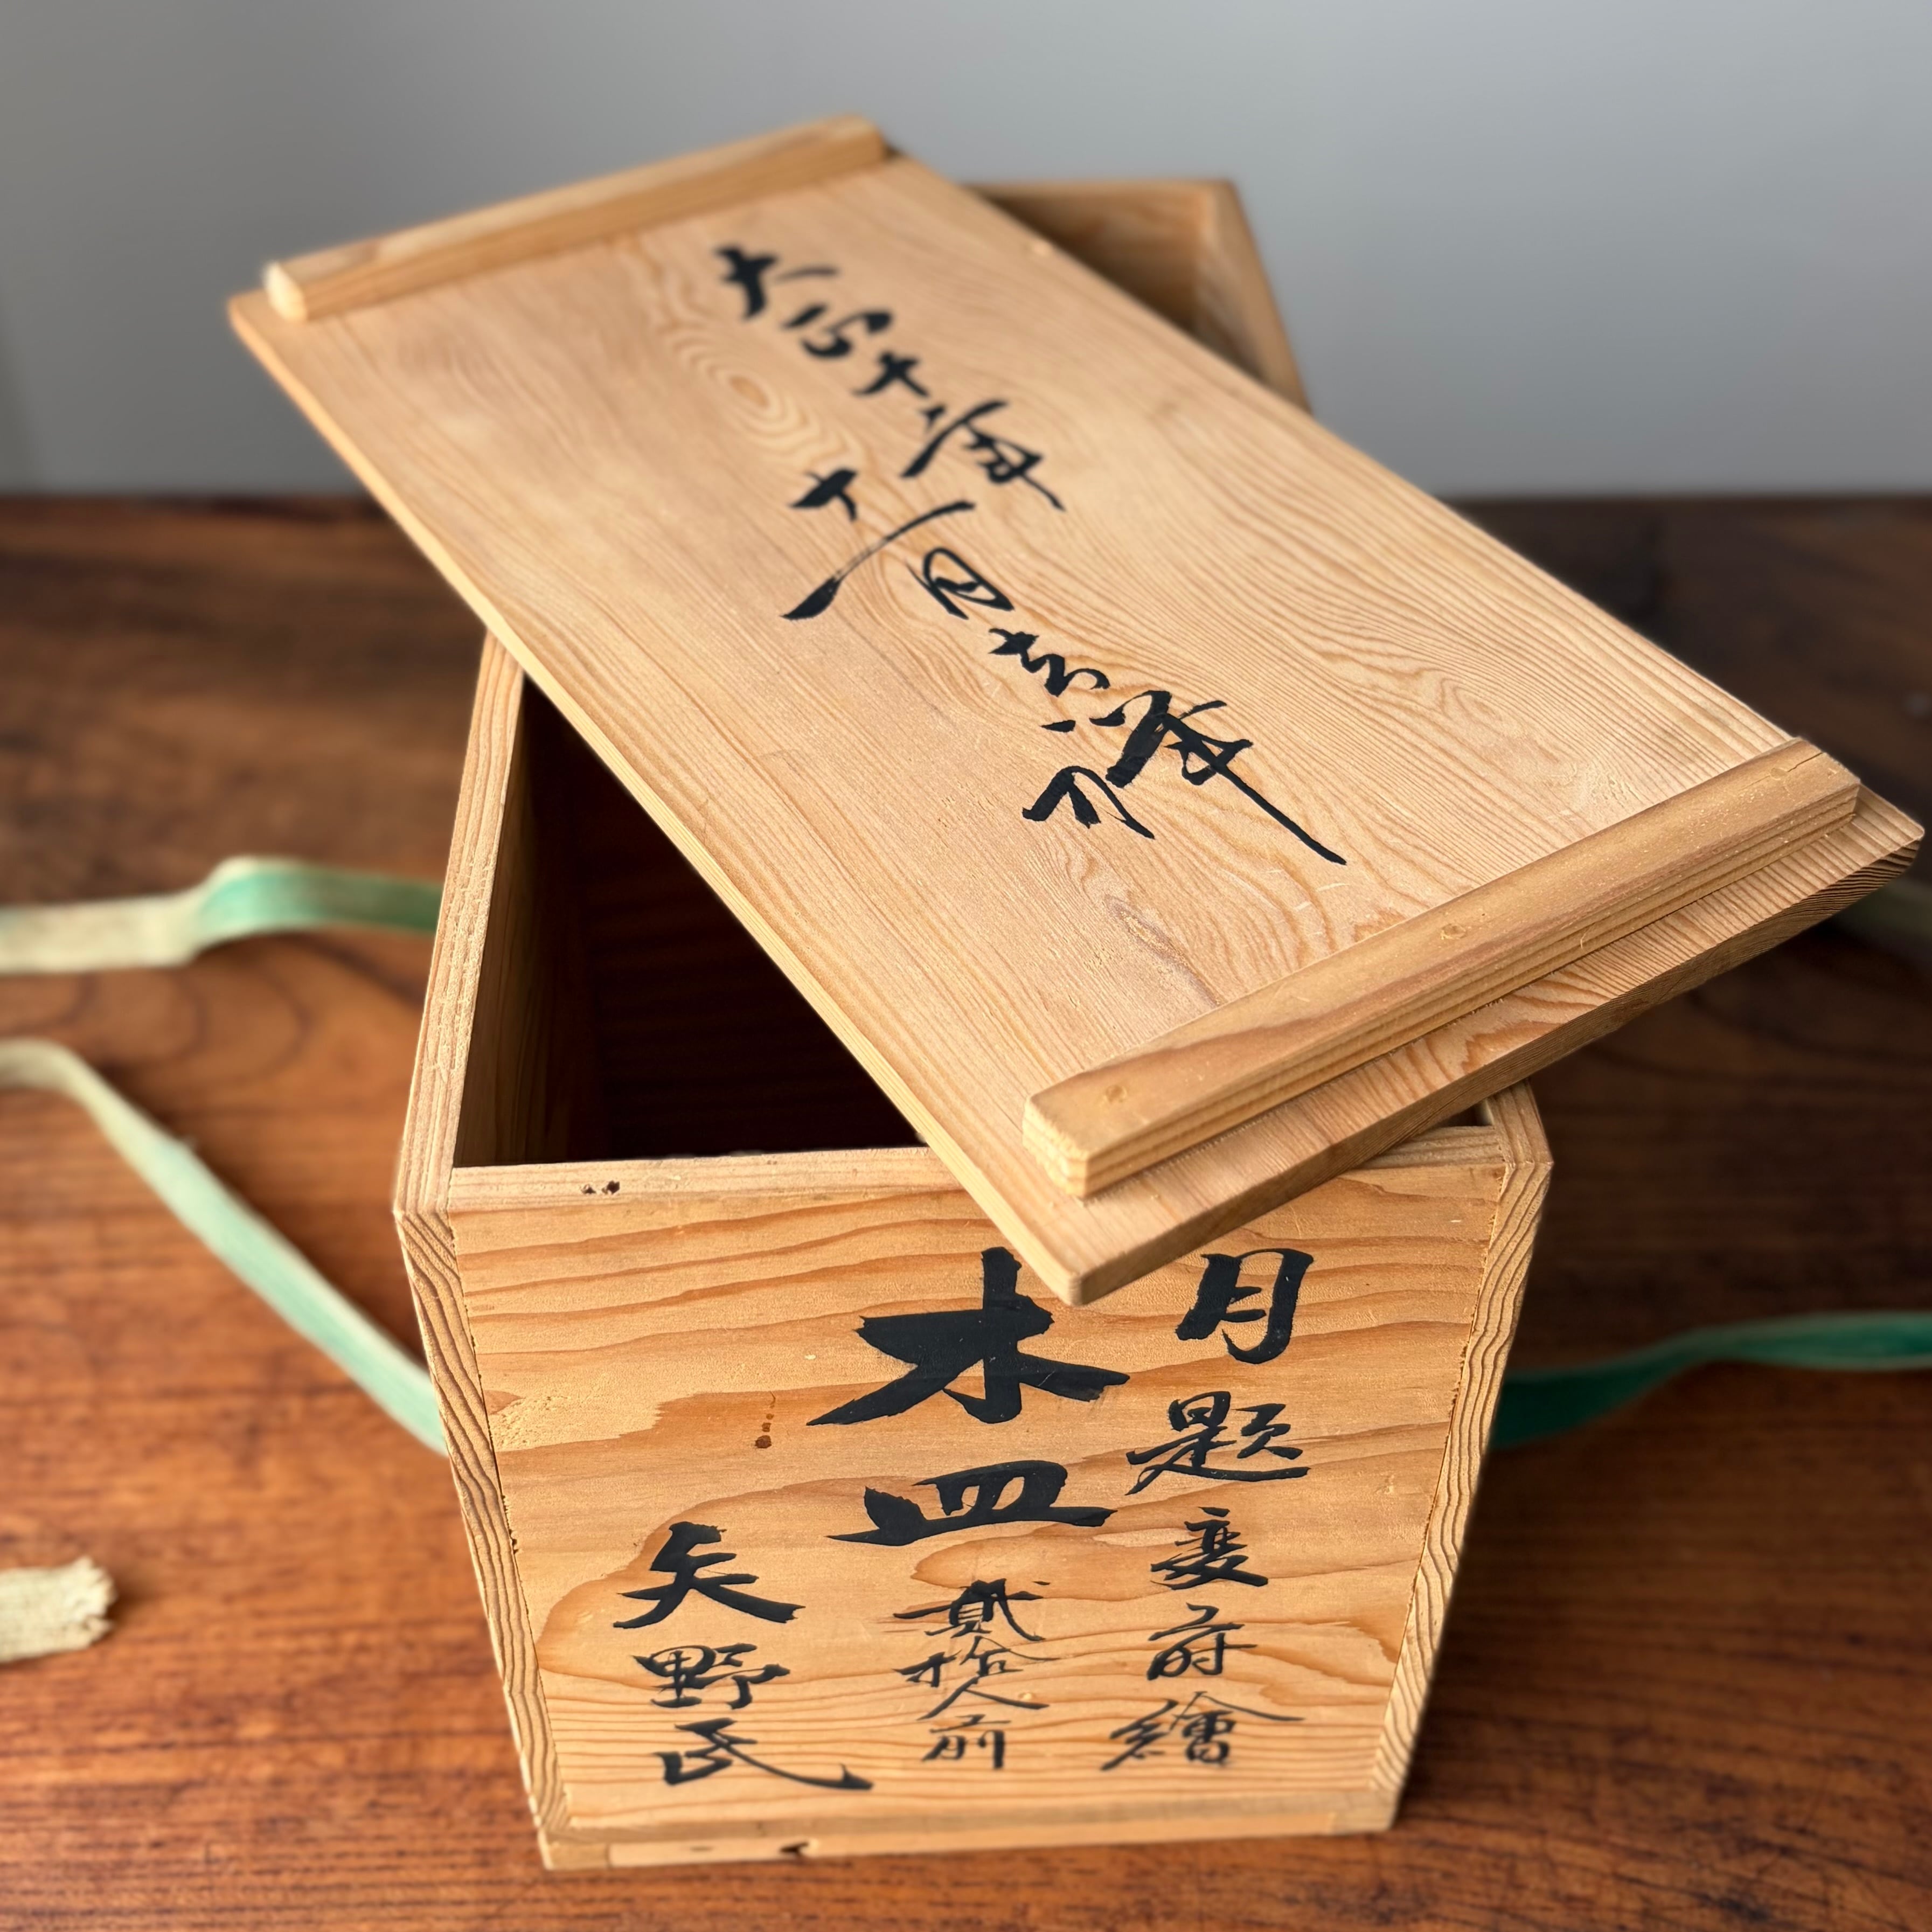 大正十年
十一月吉祥
月題変蒔繪
木皿 貳拾人前
矢野氏